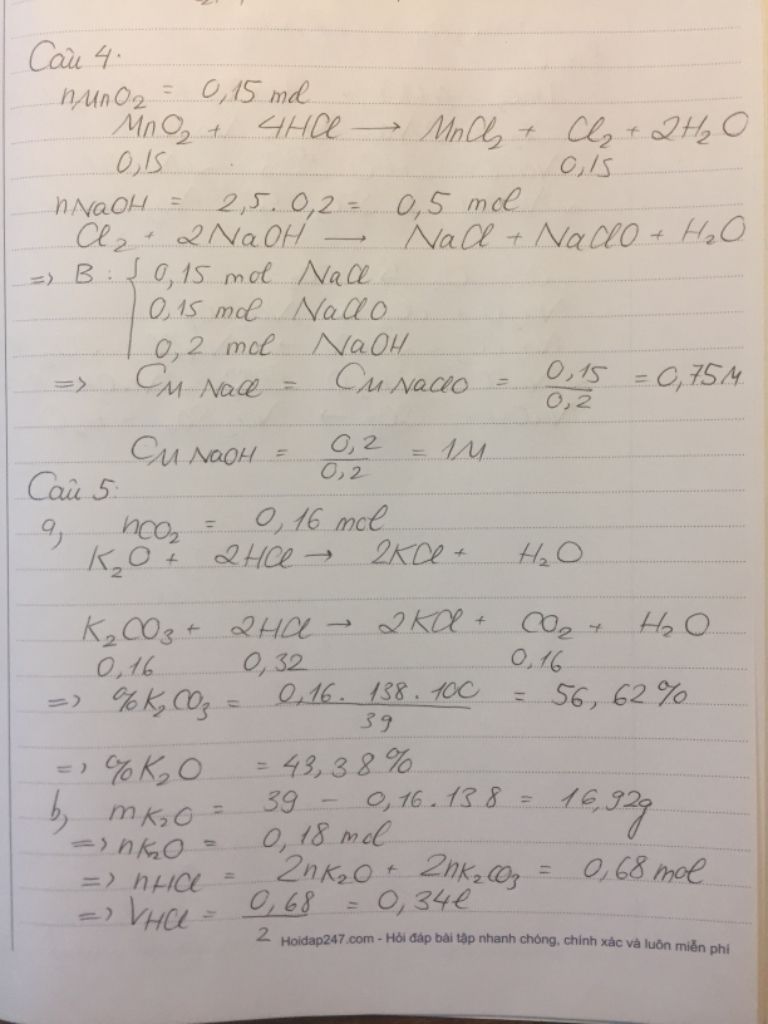 Câu 4:
nMnO₂ = 0,15 mol
MnO₂ + 4HCl → MnCl₂ + Cl₂ + 2H₂O
0,15 0,15
nNaOH = 2,5. 0,2 = 0,5 mol
Cl₂ + 2NaOH → NaCl + NaClO + H₂O
=> B : { 0,15 mol NaCl
0,15 mol NaClO
0,2 mol NaOH
=> CM NaCl = CM NaClO = 0,15/0,2 = 0,75M
CM NaOH = 0,2/0,2 = 1M
Câu 5:
a, nCO₂ = 0,16 mol
K₂O + 2HCl → 2KCl + H₂O
K₂CO₃ + 2HCl → 2KCl + CO₂ + H₂O
0,16 0,32 0,16
=> %K₂CO₃ = 0,16. 138. 100/39 = 56,62%
=> %K₂O = 43,38%
b, mK₂O = 39 - 0,16.138 = 16,92g
=> nK₂O = 0,18 mol
=> nHCl = 2nK₂O + 2nK₂CO₃ = 0,68 mol
=> VHCl = 0,68/2 = 0,34l
Hoidap247.com - Hỏi đáp bài tập nhanh chóng, chính xác và luôn miễn phí